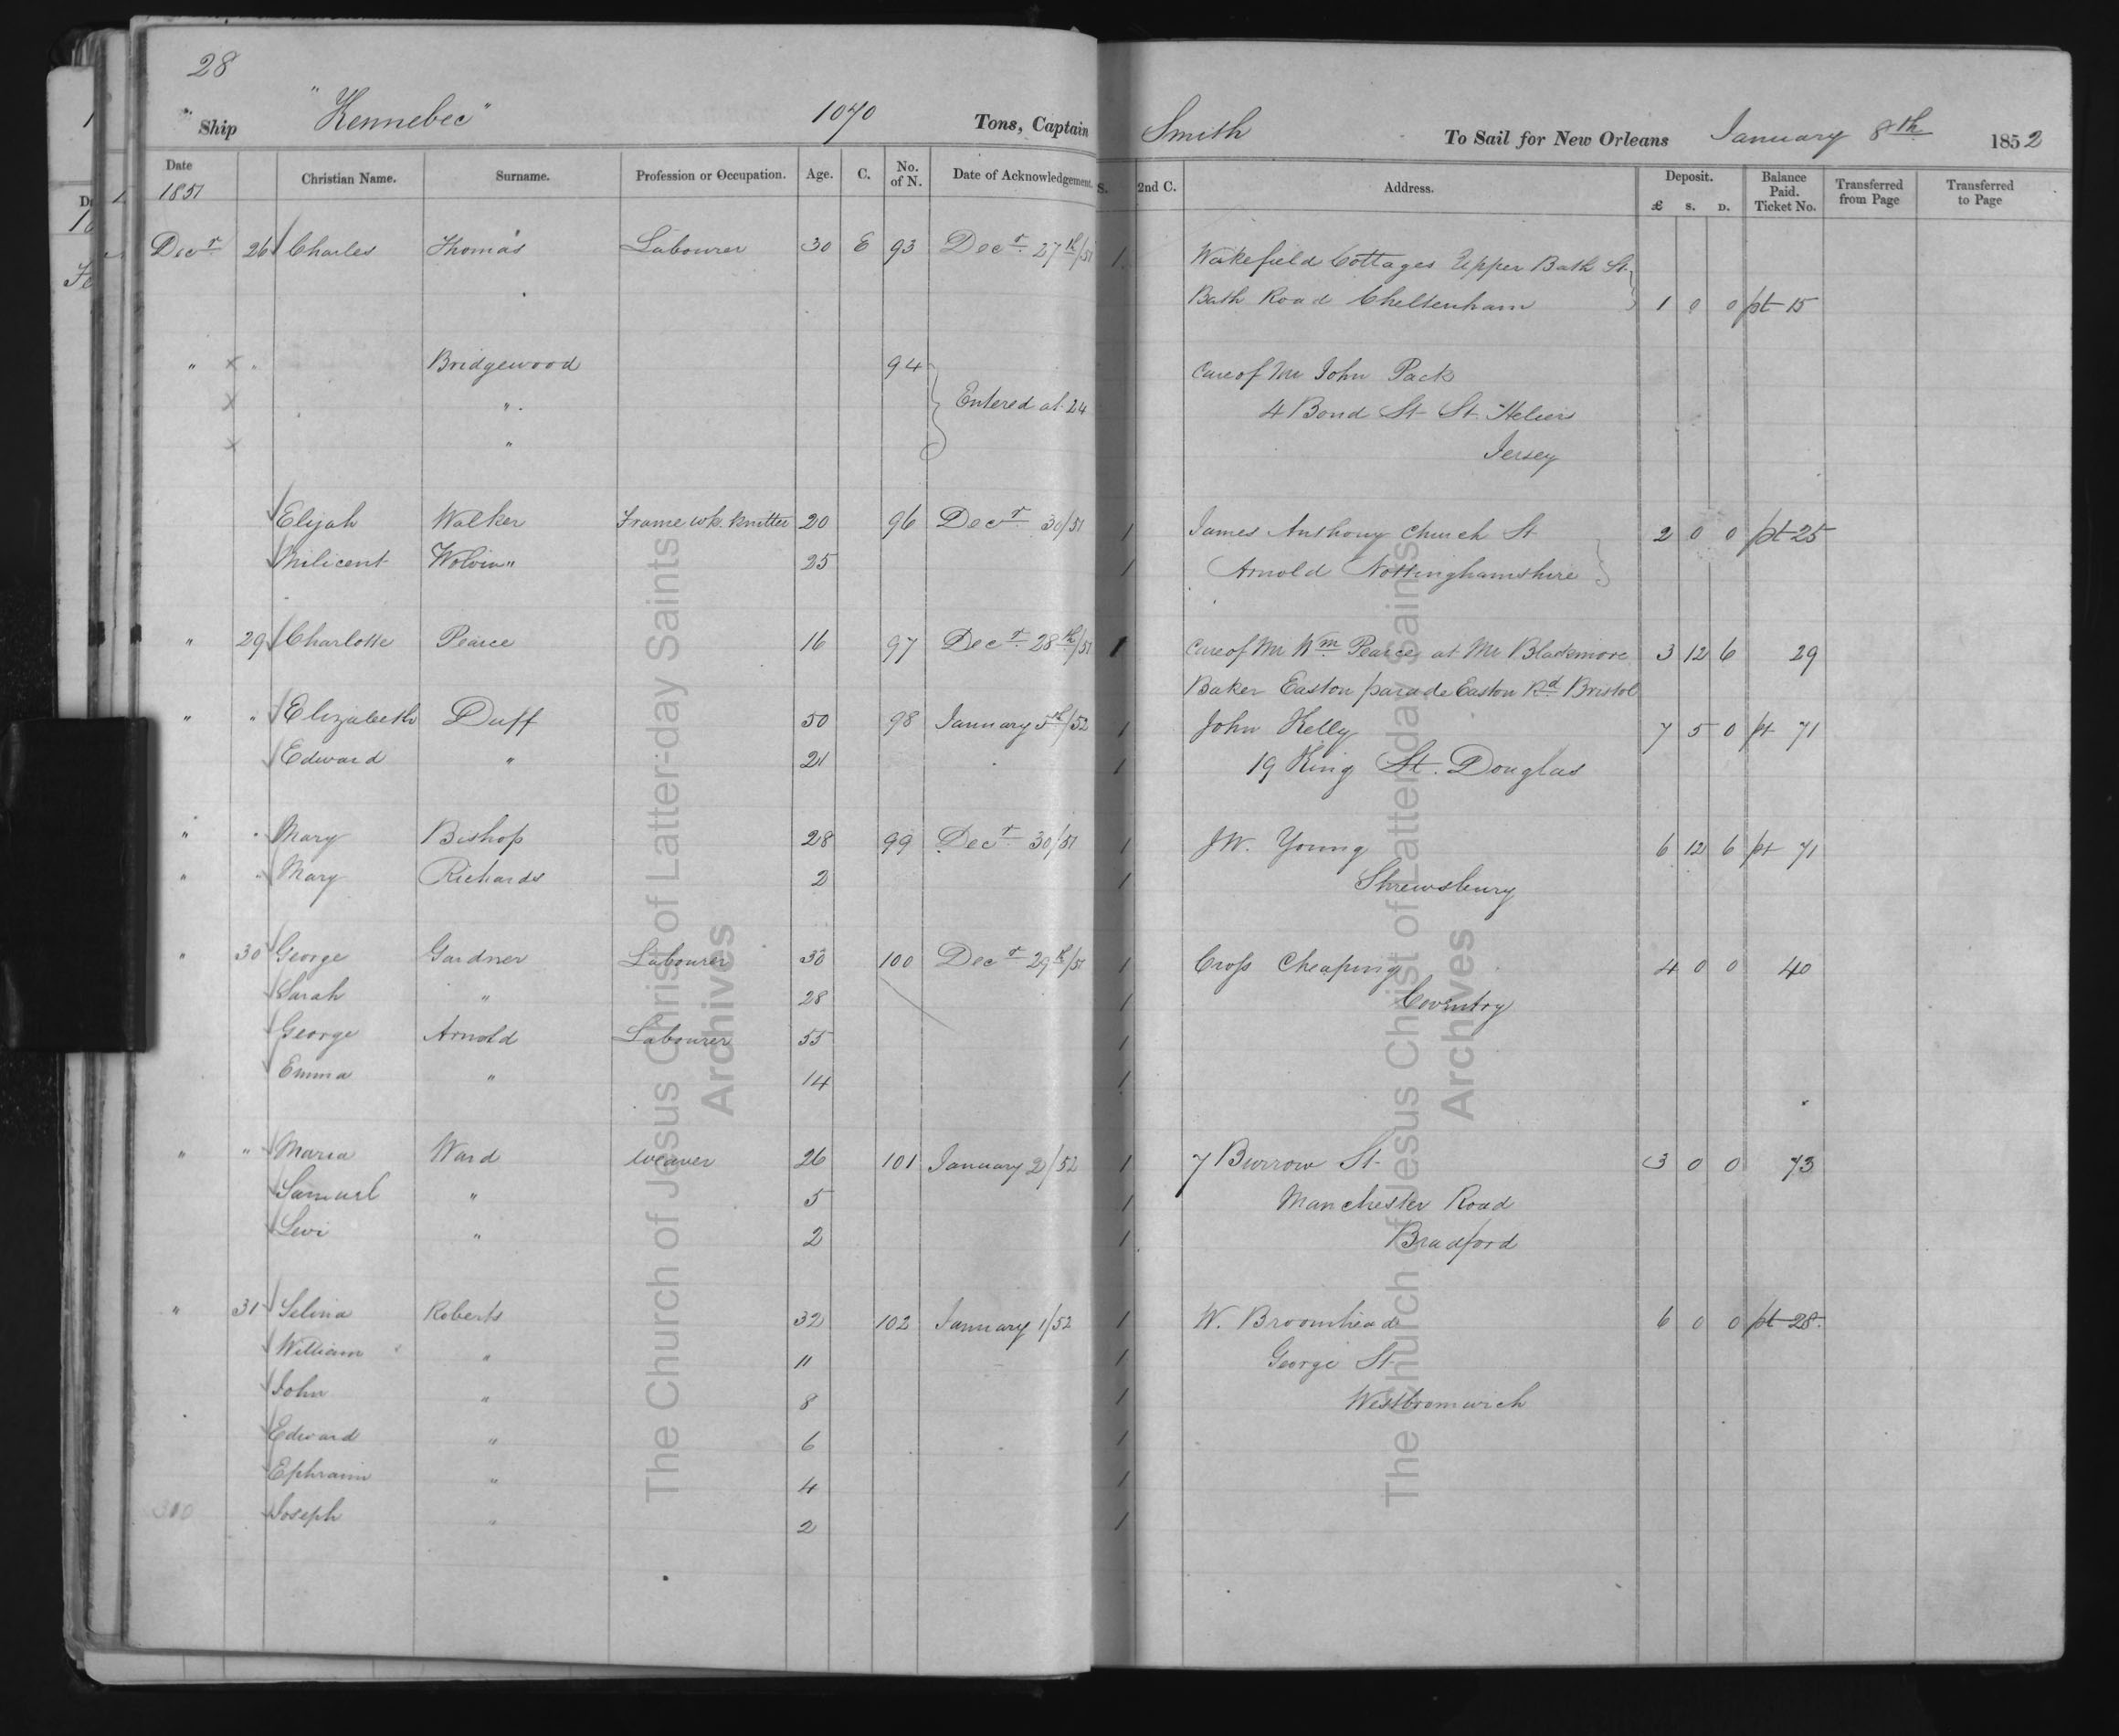 28
" Ship "Kennebec" 1070 Tons, Captain Smith To Sail for New Orleans January 8th 1852
Date Christian Name. Surname. Profession or Occupation. Age. C. No. of N. Date of Acknowledgement. S. 2nd C. Address. Deposit. £ S. D. Balance Paid. Ticket No. Transferred from Page Transferred to Page
1851
Decr 26 Charles Thomas Labourer 30 E 93 Decr 27th/51 1 Wakefield Cottages Upper Bath St.
Bath Road Cheltenham 1 0 0 pt 15
" x " Bridgewood 94 Care of Mr John Pack
x " Entered at 24 4 Bond St St. Heliers
x " Jersey
Elijah Walker Frame wk. knitter 20 96 Decr 30/51 1 James Anthony Church St 2 0 0 pt 25
Milicent Wolvin" 25 1 Arnold Nottinghamshire
" 29 Charlotte Pearce 16 97 Decr 28th/51 1 Care of Mr Wm Pearce at Mr Blackmore 3 12 6 29
Baker Easton parade Easton Rd Bristol
" " Elizabeth Duff 50 98 January 5th/52 1 John Kelly 7 5 0 pt 71
Edward " 21 1 19 King St. Douglas
" " Mary Bishop 28 99 Decr 30/51 1 J W. Young 6 12 6 pt 71
" " Mary Richards 2 1 Shrewsbury
" 30 George Gardner Labourer 30 100 Decr 29th/51 1 Cross Cheaping 4 0 0 40
Sarah " 28 1 Coventry
George Arnold Labourer 55 1
Emma " 14 1
" " Maria Ward weaver 26 101 January 2/52 1 7 Burrow St 3 0 0 73
Samuel " 5 1 Manchester Road
Levi " 2 1 Bradford
" 31 Selina Roberts 32 102 January 1/52 1 W. Broomhead 6 0 0 pt 28
William " 11 1 George St
John " 8 1 Westbromwich
Edward " 6 1
Ephraim " 4 1
300 Joseph " 2 1
The Church of Jesus Christ of Latter-day Saints
Archives
The Church of Jesus Christ of Latter-day Saints
Archives